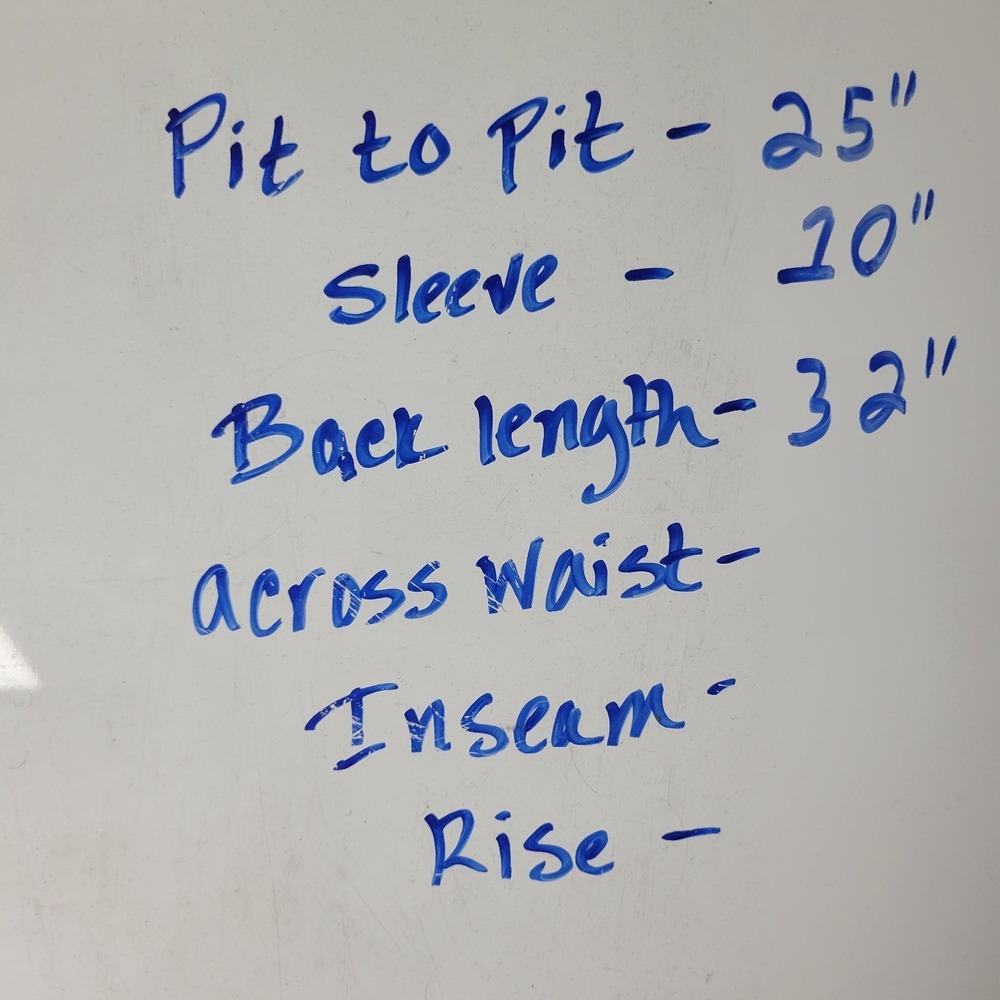 Pit to Pit - 25"
Sleeve - 10"
Back length - 32"
across Waist -
Inseam -
Rise -